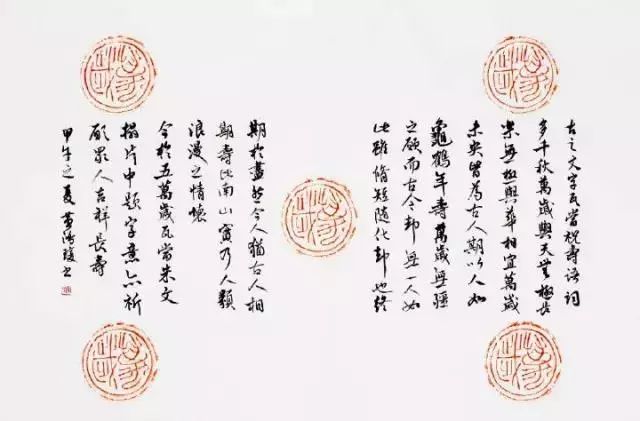 古之文字瓦當祝壽語詞
多千秋萬歲與天無極長
樂無極與華相宜萬歲
未央皆為古人期以人如
龜鶴年壽萬歲無疆
之願而古今却無一人如
此雖脩短隨化却也終
期於盡然今人猶古人相
期壽比南山實乃人類
浪漫之情懷
今於五萬歲瓦當朱文
搨片中題字意亦祈
願眾人吉祥長壽
甲午之夏